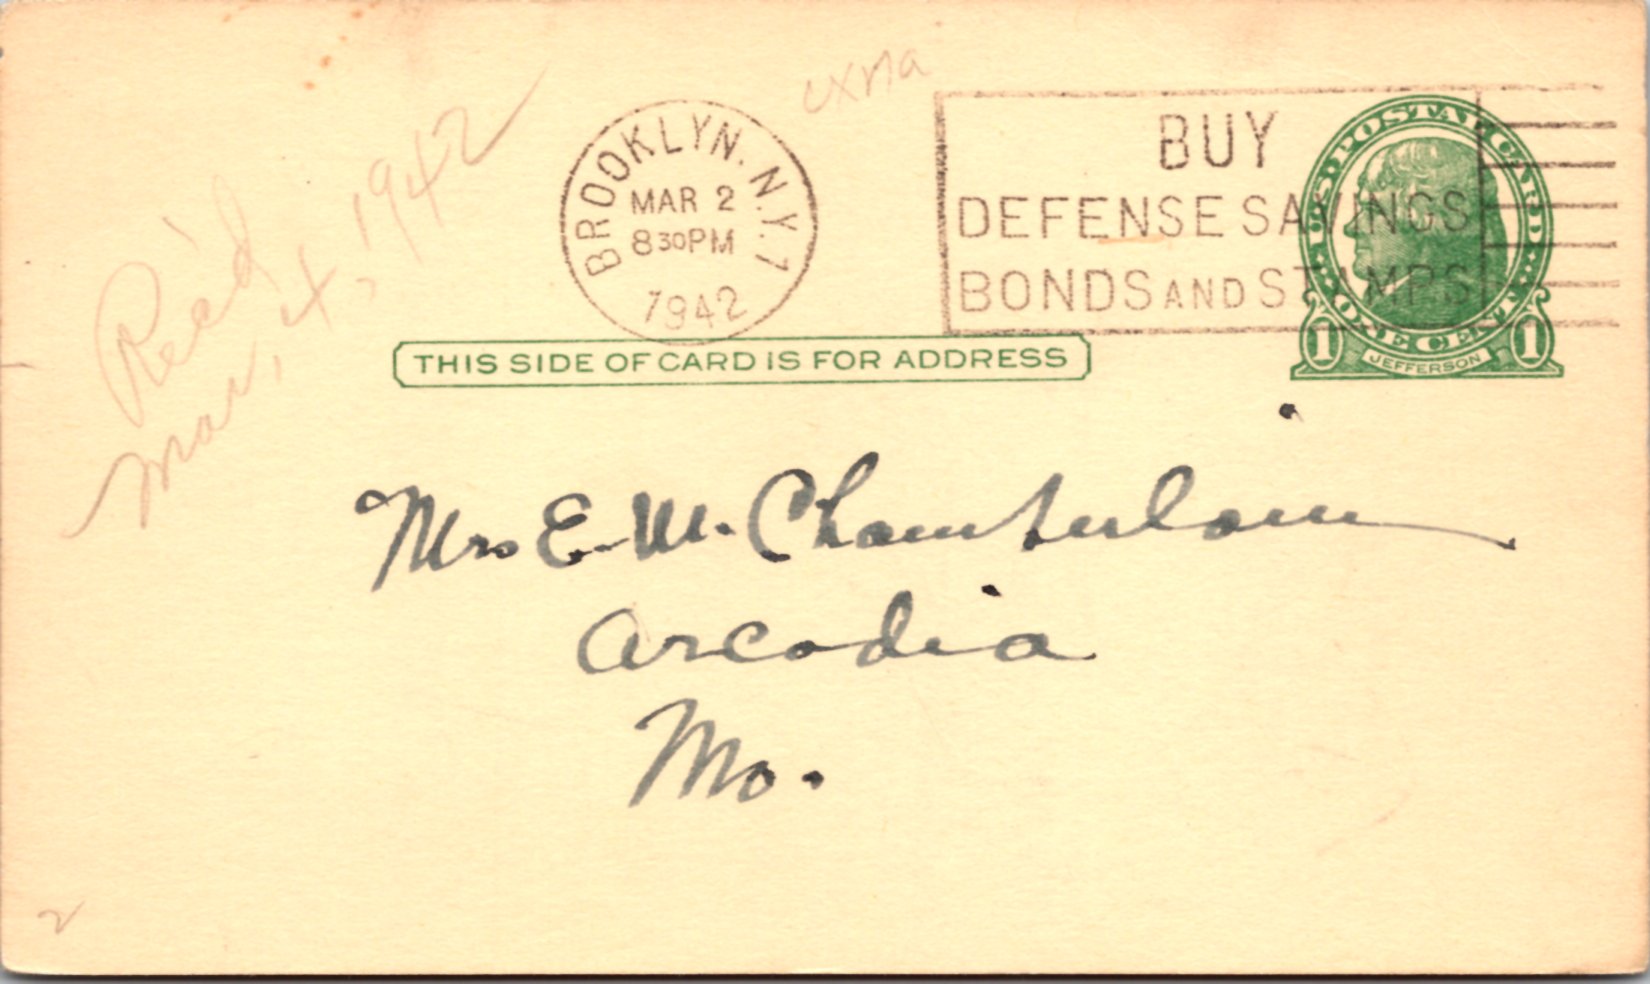 Rec'd
Mar, 4, 1942
BROOKLYN, N.Y. 1
MAR 2
8 30 PM
1942
BUY
DEFENSE SAVINGS
BONDS AND STAMPS
U.S. POSTAL CARD
ONE CENT
1 JEFFERSON 1
THIS SIDE OF CARD IS FOR ADDRESS
Mrs E. M. Chamberlain
Arcadia
Mo.
2